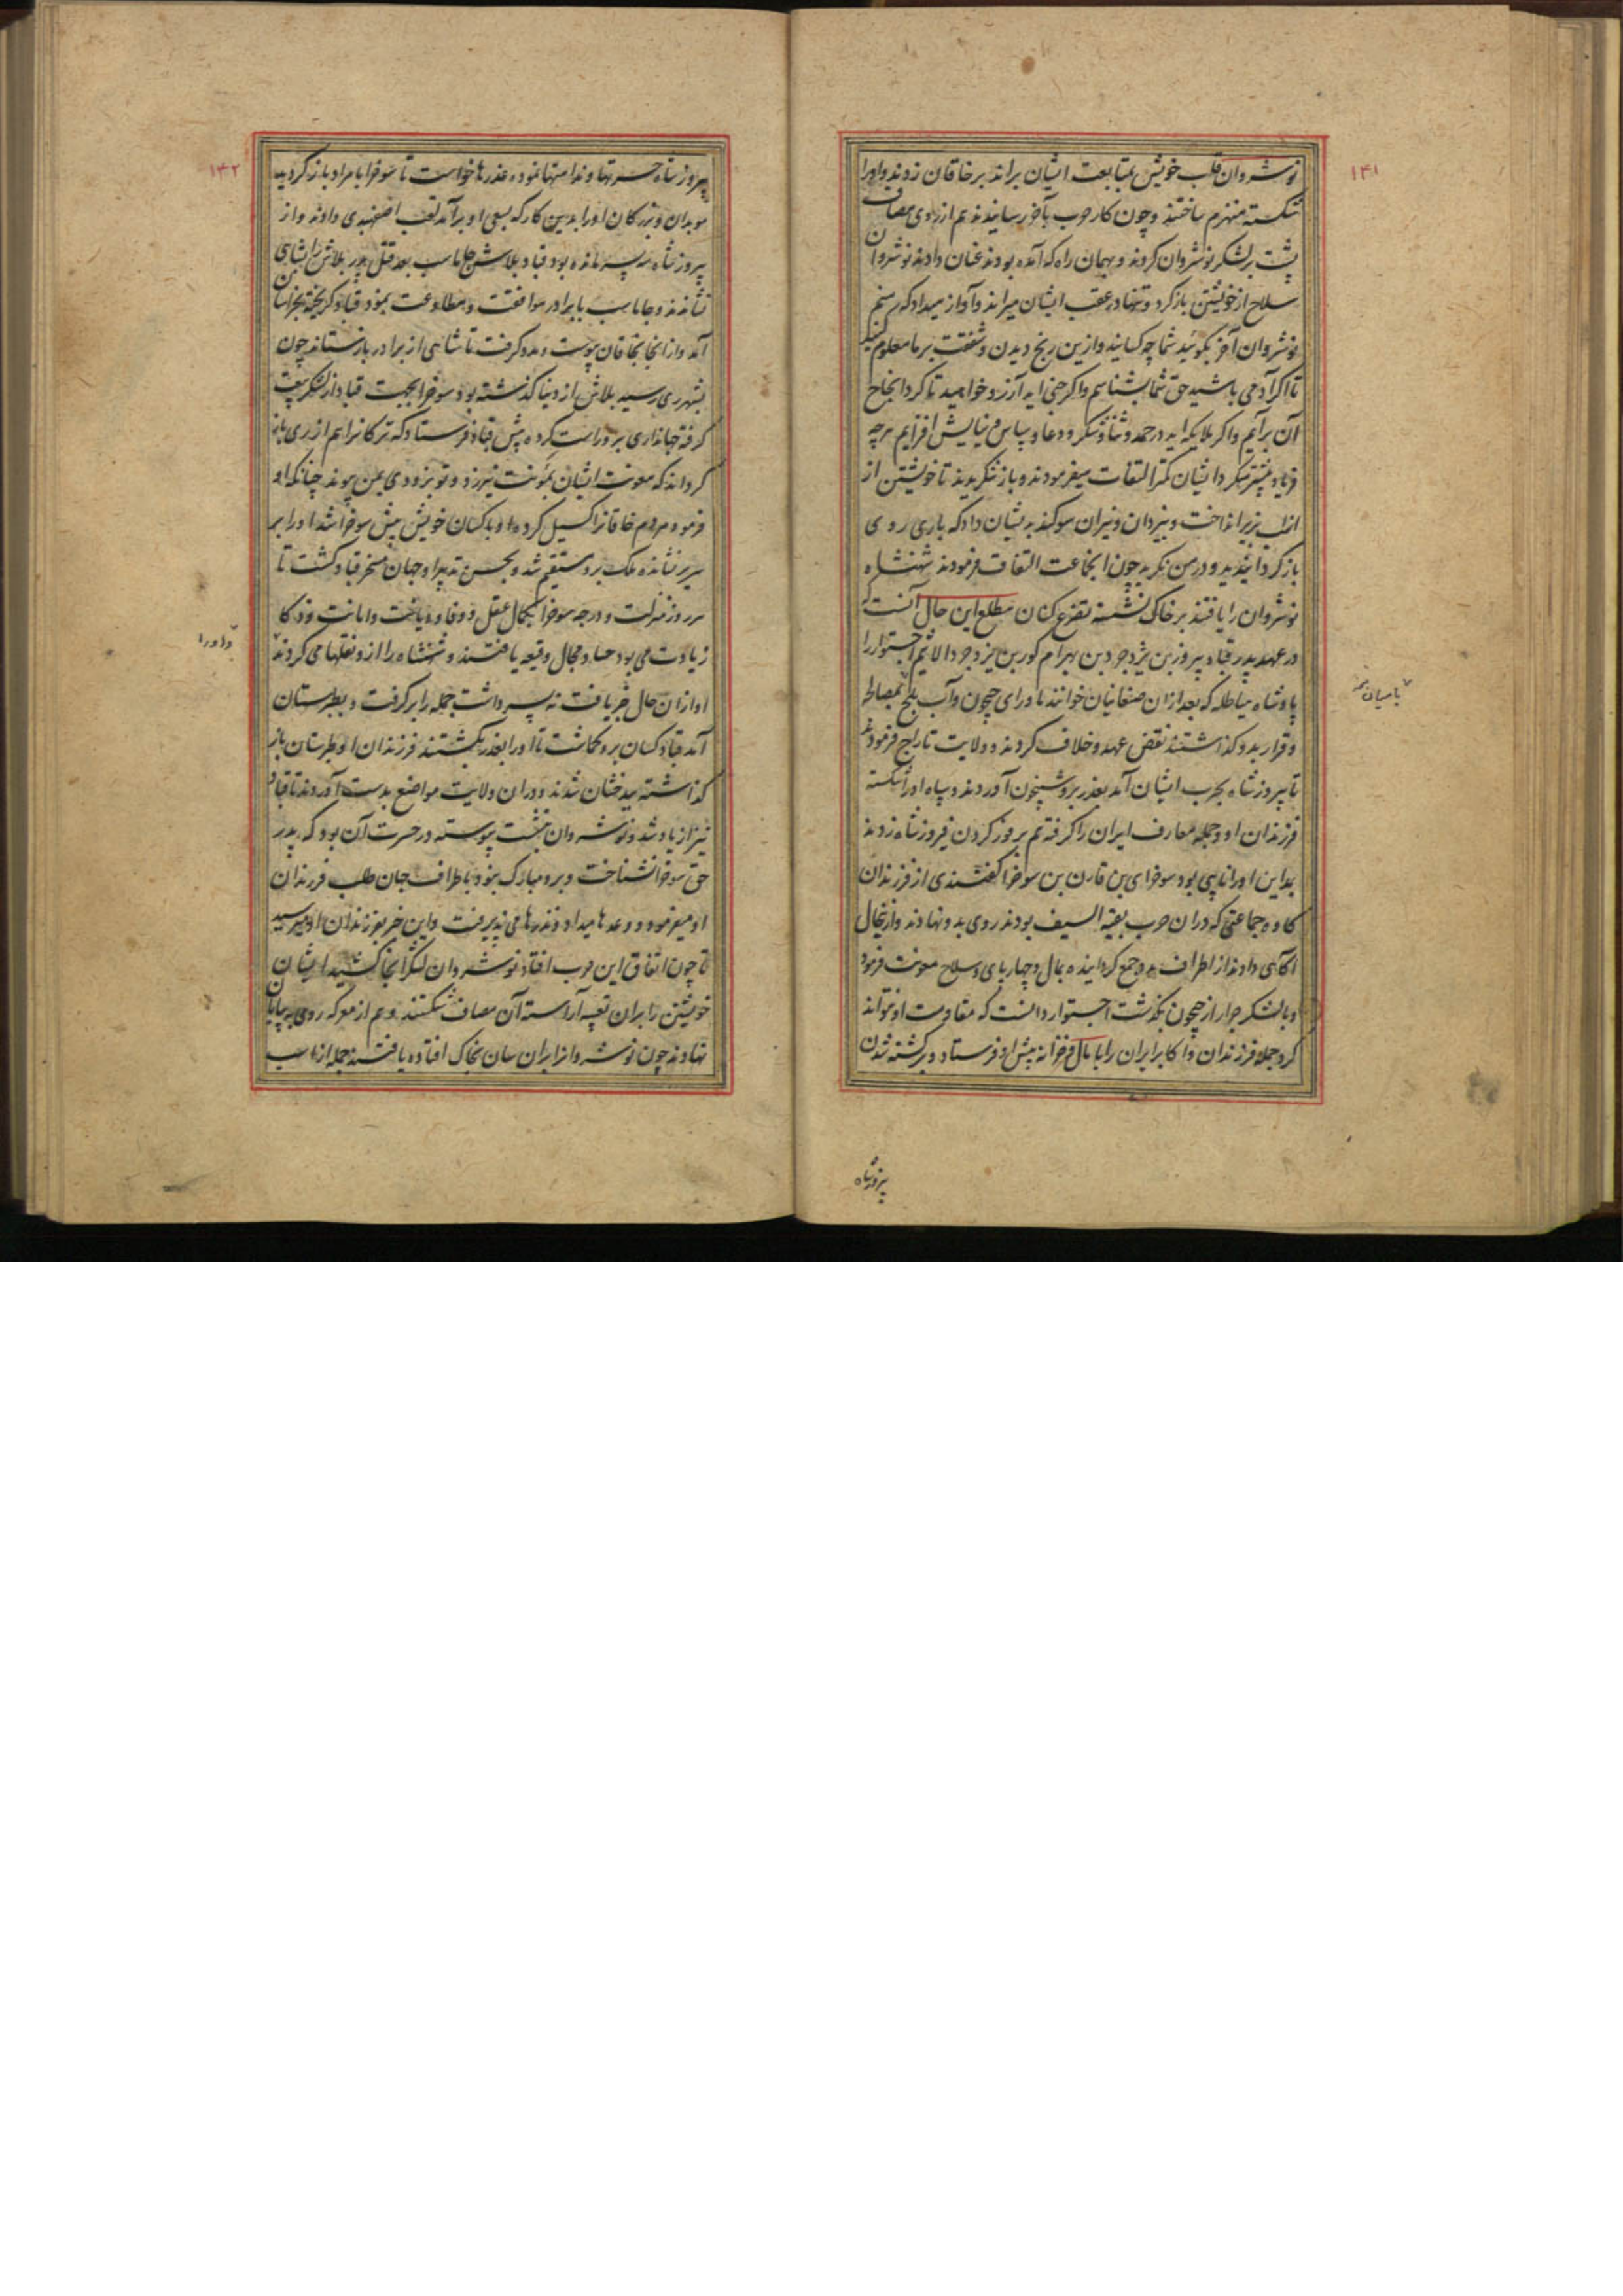 ۱۴۱
نوشروان قلب خویش بمتابعت ایشان براند بر خاقان زدند و اورا
شکسته منهزم ساختند و چون کار حرب بآخر رسانیدند هم از روی مصاف
پشت بر لشکر نوشروان کردند و بهمان راه که آمده بودند عنان دادند نوشروان
سلاح از خویشتن باز کرد و تنها در عقب ایشان میراند و آواز میداد که منم
نوشروان آخر بگوئید شما چه کسانید و ازین رنج دیدن و شفقت بر ما معلوم کنید
تا اگر آدمی باشید حق شما بشناسم و اگر جنی اید آرزو خواهید تا گرد انجاح
آن برآیم و اگر ملایکه اید در حمد و ثنا و شکر و دعا و سپاس و نیایش افزایم هرچه
فریاد بیشتر میکرد ایشان کمتر التفات میفرمودند و باز ننگریدند تا خویشتن از
اسب بزیر انداخت و بیزدان و نیران سوگند بدیشان داد که باری روی
باز گردانید و در من نگرید چون انجماعت التفات فرمودند شهنشاه
نوشروان را یافتند بر خاک نشسته تضرع کنان مطلع این حال آنست که
در عهد پدر قباد پیروز بن یزدجرد بن بهرام گور بن یزدجرد الاثیم اجستوار را
پادشاه هیاطله که بعد ازان صغانیان خوانند ماورای جیحون و آب بلخ بمصالح
و قرار بدو گذاشتند نقض عهد و خلاف کردند و ولایت تاراج فرمود
تا پیروز شاه بحرب ایشان آمد بغدر برو شبیخون آوردند و سپاه اورا شکسته
فرزندان او و جمله معارف ایران را گرفته هم بروز گردن فیروز شاه زدند
بداین اورا نایبی بود سوخرای بن قارن بن سوخرا گفتندی از فرزندان
کاوه جماعتی که دران حرب بقیه السیف بودند روی بدو نهادند و ازینحال
آگاهی دادند از اطراف مردم جمع گردانیده بمال و چهارپای و سلاح معونت فرمود
و با لشکر جرار از جیحون بگذشت اجستوار دانست که مقاومت او نتواند
کرد جمله فرزندان و اکابر ایران را با مال و خزانه پیش او فرستاد و بر کشته شدن
بامیان
پیروز شاه
۱۴۲
پیروز شاه حسرتها و ندامتها نموده عذرها خواست تا سوخرا با مراد باز گردید
موبدان و بزرگان اورا بدین کار که بسعی او برآمد لقب اصفهبدی دادند و از
پیروز شاه سه پسر مانده بود قباد بلاش جاماسب بعد قتل پدر بلاش را بشاهی
نشاندند و جاماسب با برادر موافقت و مطاوعت نمود قباد گریخته بخراسان
آمد و از انجا بخاقان پیوست و مدد گرفت تا شاهی از برادر باز ستاند چون
بشهر ری رسید بلاش از دنیا گذشته بود سوخرا بجهت قباد از لشکر بیعت
گرفته جهانداری برو راست کرده پیش قباد فرستاد که ترکانرا هم از ری باز
گرداند که معونت ایشان بمؤنت نیرزد و تو بزودی بمن پیوند چنانکه او
فرمود مردم خاقانرا گسیل کرده او با کسان خویش پیش سوخرا شد اورا بر
سریر نشانده ملک برو مستقیم شد و بحسن تدبیر او جهان مسخر قباد گشت تا
هر روز منزلت و درجه سوخرا بکمال عقل و وفا و دیانت و امانت و ذکا
زیادت می بود حساد مجال وقیعه یافتند و شهنشاه را ازو نقلها می کردند
او ازان حال خبر یافت نه پسر داشت جمله را برگرفت و بطبرستان
آمد قباد کسان برو گماشت تا اورا بغدر بکشتند فرزندان او طبرستان باز
گذاشته ببدخشان شدند و دران ولایت مواضع بدست آوردند تا قباد
نیز از یاد شد و نوشروان بنشست پیوسته در حسرت آن بود که پدر
حق سوخرا نشناخت و برو مبارک نبود باطراف جهان طلب فرزندان
او میفرمود و وعدها میداد و نذرها می پذیرفت و این خبر بفرزندان او میرسید
تا چون اتفاق این حرب افتاد نوشروان لشکر انجا کشید ایشان
خویشتن را بران تعبیه آراسته آن مصاف شکستند و هم از معرکه روی به بیابان
نهادند چون نوشروانرا بران سان بخاک افتاده یافتند جمله از اسب
واورا